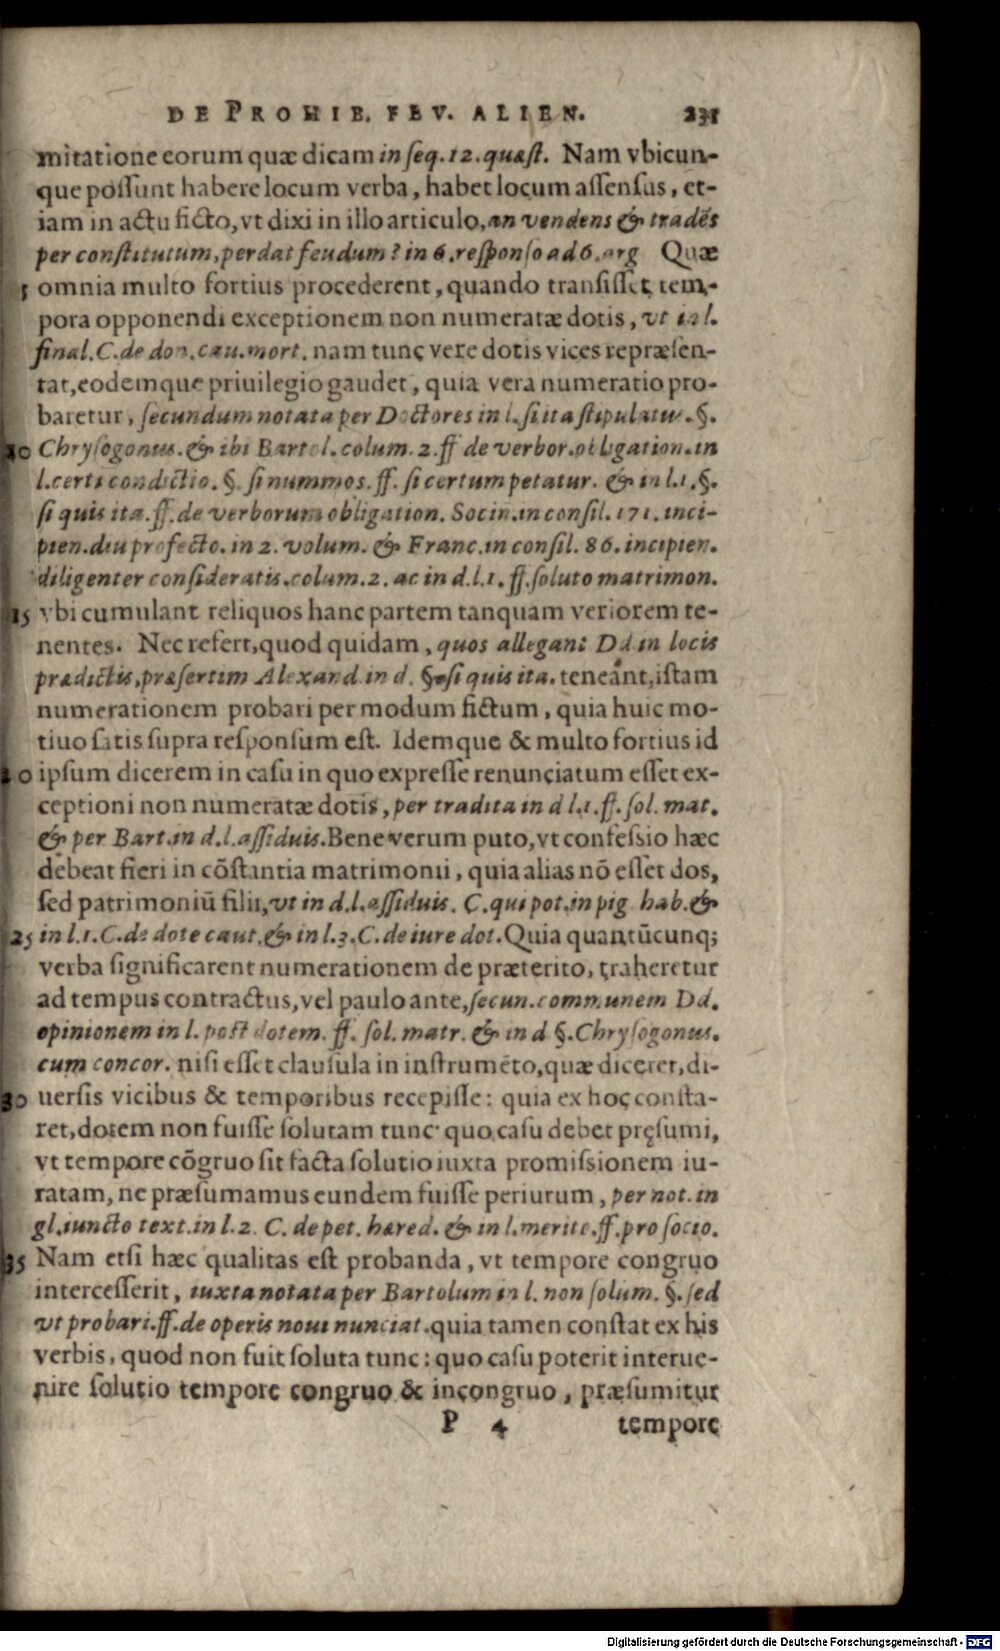 DE PROHIB. FEV. ALIEN. 231
mitatione eorum quæ dicam in seq. 12. quæst. Nam vbicun-
que possunt habere locum verba, habet locum assensus, et-
iam in actu ficto, vt dixi in illo articulo, an vendens & tradẽs
per constitutum, perdat feudum? in 6. responso ad 6. arg Quæ
5 omnia multo fortius procederent, quando transisset tem-
pora opponendi exceptionem non numeratæ dotis, vt in l.
final. C. de don. cau. mort. nam tunc vere dotis vices repræsen-
tat, eodemque priuilegio gaudet, quia vera numeratio pro-
baretur, secundum notata per Doctores in l. si ita stipulatus. §.
10 Chrysogonus. & ibi Bartol. colum. 2. ff de verbor. obligation. in
l. certi condictio. §. si nummos. ff. si certum petatur. & in l. 1. §.
si quis ita. ff. de verborum obligation. Socin. in consil. 171. inci-
pien. diu profecto. in 2. volum. & Franc. in consil. 86. incipien.
diligenter consideratis. colum. 2. ac in d. l. 1. ff. soluto matrimon.
15 vbi cumulant reliquos hanc partem tanquam veriorem te-
nentes. Nec refert, quod quidam, quos allegant Dd in locis
prædictis, præsertim Alexand. in d. §. si quis ita. teneant, istam
numerationem probari per modum fictum, quia huic mo-
tiuo satis supra responsum est. Idemque & multo fortius id
20 ipsum dicerem in casu in quo expresse renunciatum esset ex-
ceptioni non numeratæ dotis, per tradita in d l. 1. ff. sol. mat.
& per Bart. in d. l. assiduis. Bene verum puto, vt confessio hæc
debeat fieri in cõstantia matrimonii, quia alias nõ esset dos,
sed patrimoniũ filii, vt in d. l. assiduis. C. qui pot. in pig hab. &
25 in l. 1. C. de dote caut. & in l. 3. C. de iure dot. Quia quantũcunq;
verba significarent numerationem de præterito, traheretur
ad tempus contractus, vel paulo ante, secun. communem Dd.
opinionem in l. post dotem. ff. sol. matr. & in d §. Chrysogonus.
cum concor. nisi esset clausula in instrumẽto, quæ diceret, di-
30 uersis vicibus & temporibus recepisse: quia ex hoc consta-
ret, dotem non fuisse solutam tunc quo casu debet pręsumi,
vt tempore cõgruo sit facta solutio iuxta promissionem iu-
ratam, ne præsumamus eundem fuisse periurum, per not. in
gl. iuncto text. in l. 2. C. de pet. hæred. & in l. merito. ff. pro socio.
35 Nam etsi hæc qualitas est probanda, vt tempore congruo
intercesserit, iuxta notata per Bartolum in l. non solum. §. sed
vt probari. ff. de operis noui nunciat. quia tamen constat ex his
verbis, quod non fuit soluta tunc: quo casu poterit interue-
nire solutio tempore congruo & incongruo, præsumitur
P 4 tempore
Digitalisierung gefördert durch die Deutsche Forschungsgemeinschaft - DFG